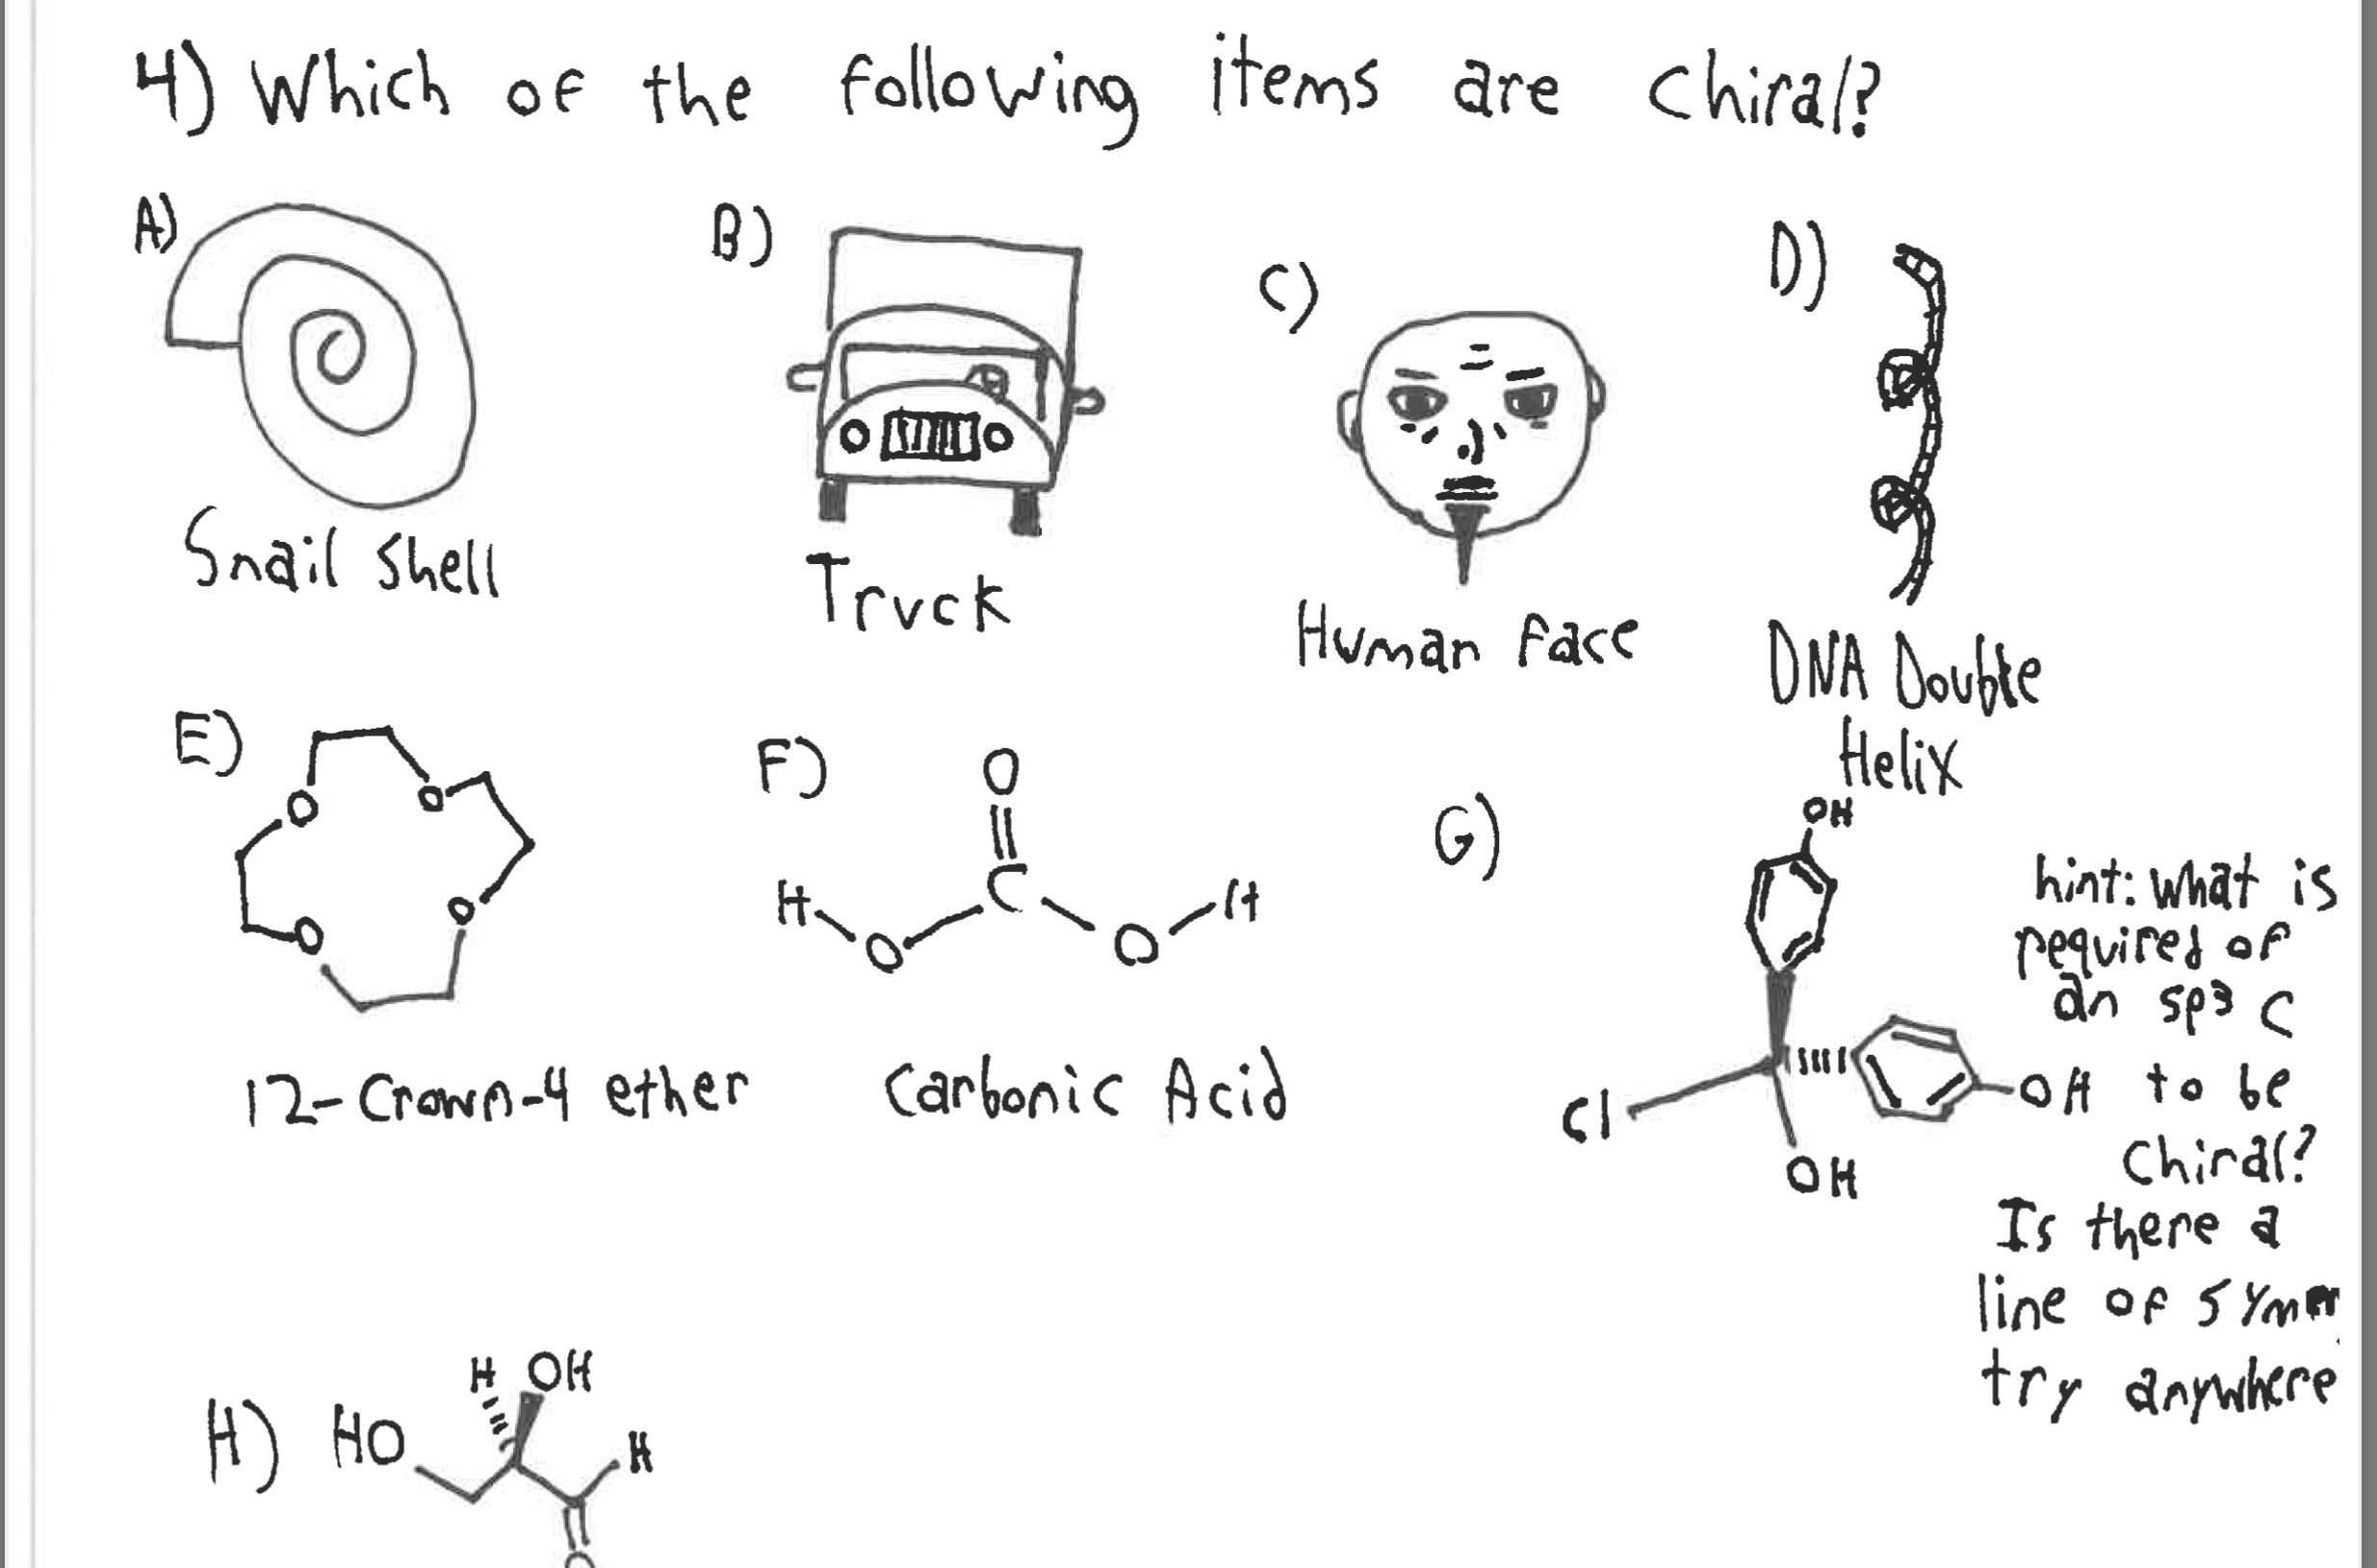 4) Which of the following items are chiral?
A)
B)
C)
D)
Snail Shell
Truck
Human Face
DNA Double
Helix
E)
O
O
O
O
12-Crown-4 ether
F)
O
C
H
O
O
H
Carbonic Acid
G)
OH
OH
Cl
OH
hint: what is
required of
an sp3 C
to be
chiral?
Is there a
line of symm
try anywhere
H) HO
H OH
H
O